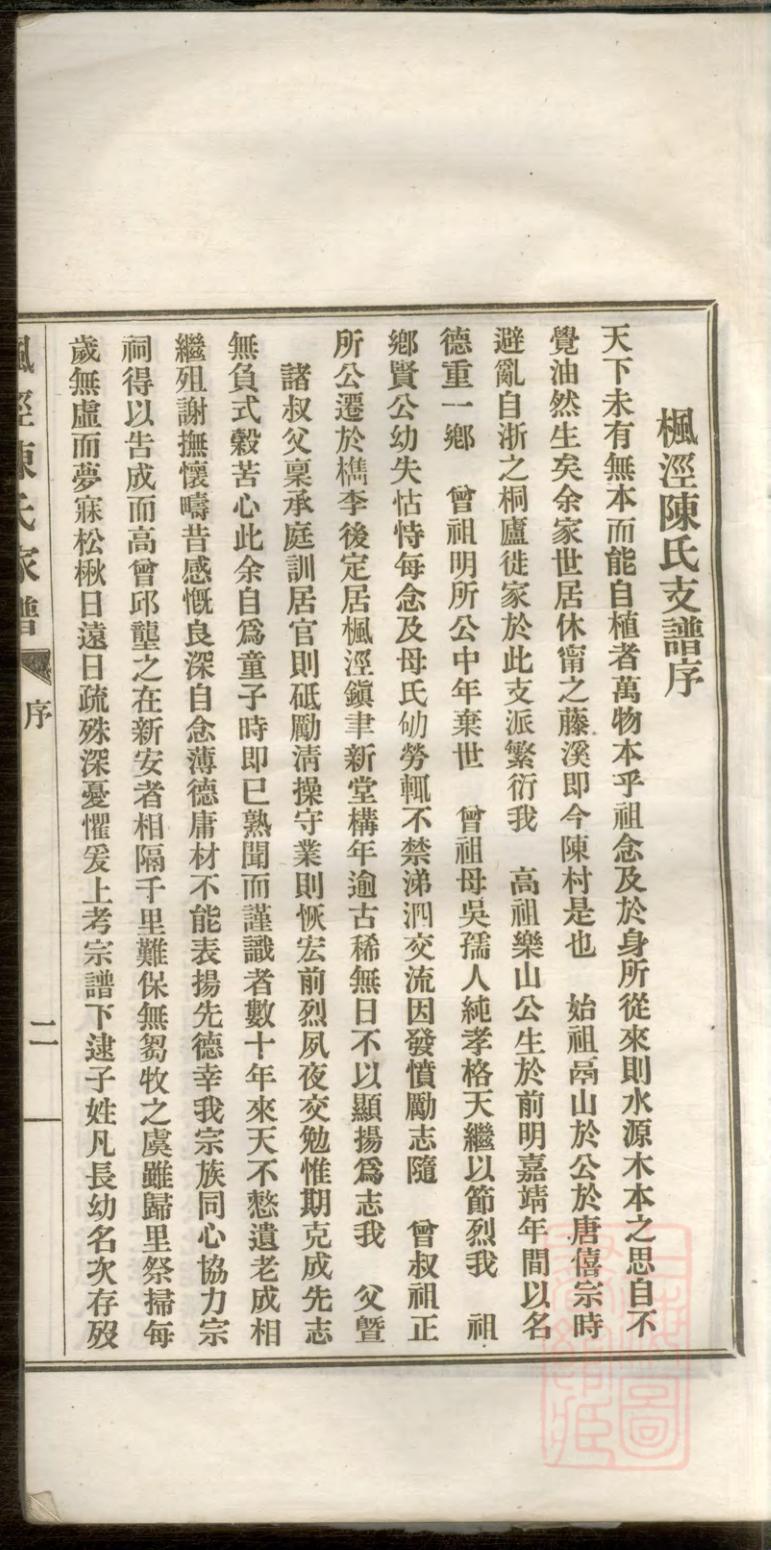 楓涇陳氏支譜序
天下未有無本而能自植者萬物本乎祖念及於身所從來則水源木本之思自不
覺油然生矣余家世居休甯之藤溪即今陳村是也　始祖鬲山於公於唐僖宗時
避亂自浙之桐廬徙家於此支派繁衍我　高祖樂山公生於前明嘉靖年間以名
德重一鄉　曾祖明所公中年棄世　曾祖母吳孺人純孝格天繼以節烈我　祖
鄉賢公幼失怙恃每念及母氏劬勞輒不禁涕泗交流因發憤勵志隨　曾叔祖正
所公遷於檇李後定居楓涇鎭聿新堂構年逾古稀無日不以顯揚爲志我　父曁
諸叔父稟承庭訓居官則砥勵淸操守業則恢宏前烈夙夜交勉惟期克成先志
無負式穀苦心此余自爲童子時即已熟聞而謹識者數十年來天不憖遺老成相
繼殂謝撫懷疇昔感慨良深自念薄德庸材不能表揚先德幸我宗族同心協力宗
祠得以告成而高曾邱壟之在新安者相隔千里難保無芻牧之虞雖歸里祭掃每
歲無虛而夢寐松楸日遠日疏殊深憂懼爰上考宗譜下逮子姓凡長幼名次存歿
楓涇陳氏家譜
序
二